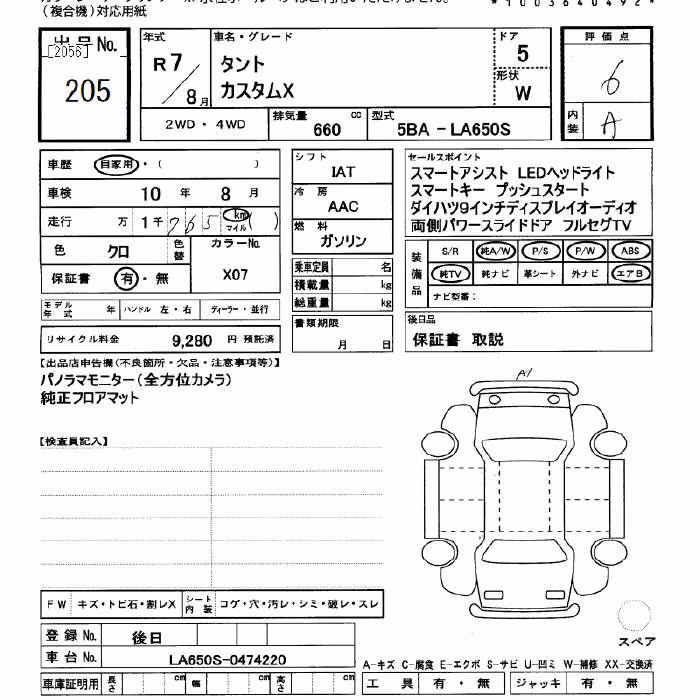 (複合機)対応用紙
*1003640492*
出品No.
[2056]
205
年式
R7/8月
車名・グレード
タント
カスタムX
ドア
5
形状
W
2WD・4WD
排気量 660 cc
型式 5BA -LA650S
評価点
6
内装 A
車歴 自家用・( )
車検 10 年 8 月
走行 万 1千765 km マイル ( )
色 クロ 色替
カラーNo.
X07
保証書 有・無
モデル年式 年 ハンドル 左・右 ディーラー・並行
リサイクル料金 9,280 円 預託済
シフト
IAT
冷房
AAC
燃料
ガソリン
乗車定員 名
積載量 kg
総重量 kg
書類期限
月 日
セールスポイント
スマートアシスト LEDヘッドライト
スマートキー プッシュスタート
ダイハツ9インチディスプレイオーディオ
両側パワースライドドア フルセグTV
装備品
S/R 純A/W P/S P/W ABS
純TV 純ナビ 革シート 外ナビ エアB
ナビ型番:
後日品
保証書 取説
【出品店申告欄(不良箇所・欠品・注意事項等)】
パノラマモニター(全方位カメラ)
純正フロアマット
【検査員記入】
A1
FW キズ・トビ石・割レX シート内装 コゲ・穴・汚レ・シミ・破レ・スレ
登録No. 後日
車台No. LA650S-0474220
車庫証明用 長さ cm 幅 cm 高さ cm
スペア
A-キズ C-腐食 E-エクボ S-サビ U-凹ミ W-補修 XX-交換済
工具 有・無 ジャッキ 有・無